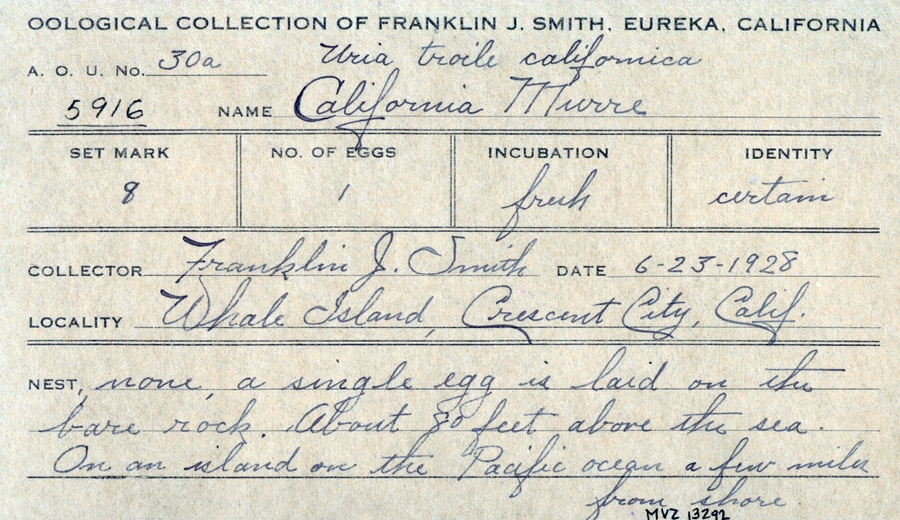 OOLOGICAL COLLECTION OF FRANKLIN J. SMITH, EUREKA, CALIFORNIA
A. O. U. No. 30a Uria troile californica
5916 NAME California Murre
SET MARK NO. OF EGGS INCUBATION IDENTITY
8 1 fresh certain
COLLECTOR Franklin J. Smith DATE 6-23-1928
LOCALITY Whale Island, Crescent City, Calif.
NEST, none, a single egg is laid on the
bare rock. About 80 feet above the sea.
On an island on the Pacific ocean a few miles
from shore.
MVZ 13292